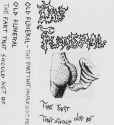 OLD FUNERAL
THE FART THAT SHOULD NOT BE
OLD FUNERAL
THE FART THAT SHOULD NOT BE
OLD
FUNERAL
THE FART
THAT SHOULD NOT BE